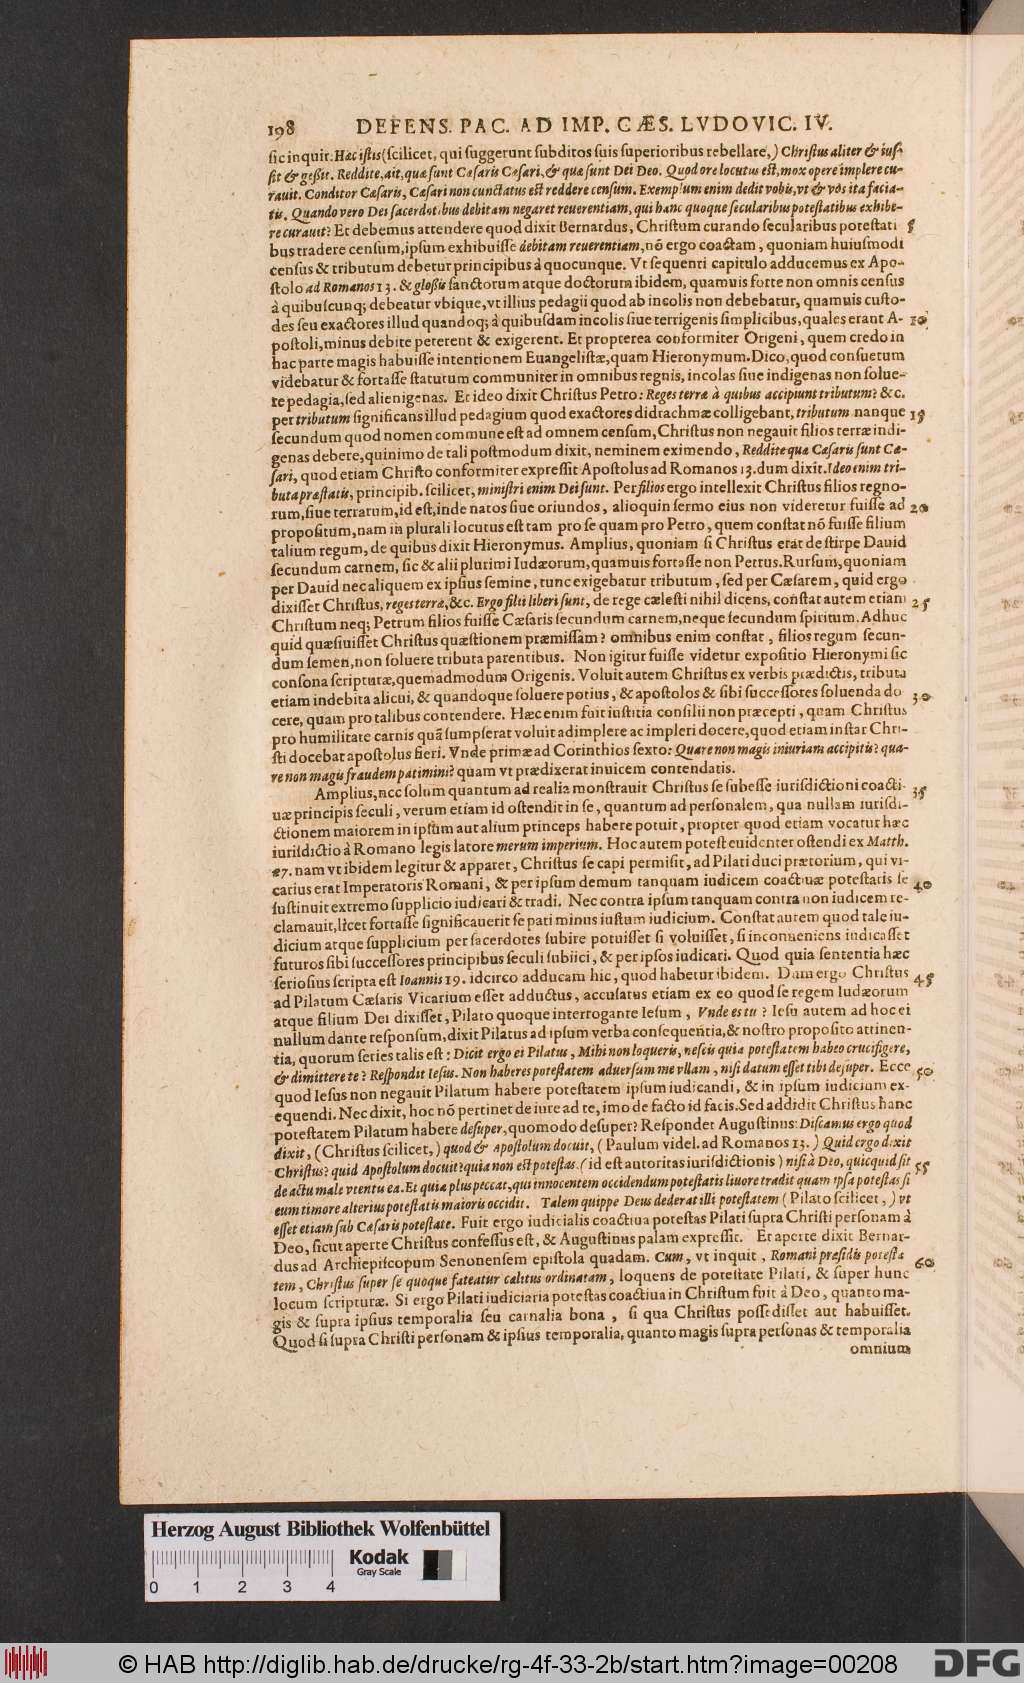 198 DEFENS. PAC. AD IMP. CÆS. LVDOVIC. IV.
sic inquit. Hæc istis (scilicet, qui suggerunt subditos suis superioribus rebellare,) Christus aliter & ius-
sit & gessit. Reddite, ait, quæ sunt Cæsaris Cæsari, & quæ sunt Dei Deo. Quod ore locutus est, mox opere implere cu-
rauit. Conditor Cæsaris, Cæsari non cunctatus est reddere censum. Exemplum enim dedit vobis, vt & vos ita facia-
tis. Quando vero Dei sacerdotibus debitam negaret reuerentiam, qui hanc quoque secularibus potestatibus exhibe-
re curauit? Et debemus attendere quod dixit Bernardus, Christum curando secularibus potestati 5
bus tradere censum, ipsum exhibuisse debitam reuerentiam, nō ergo coactam, quoniam huiusmodi
census & tributum debetur principibus à quocunque. Vt sequenti capitulo adducemus ex Apo-
stolo ad Romanos 13. & glossis sanctorum atque doctorum ibidem, quamuis forte non omnis census
à quibuscunq; debeatur vbique, vt illius pedagii quod ab incolis non debebatur, quamuis custo-
des seu exactores illud quandoq; à quibusdam incolis siue terrigenis simplicibus, quales erant A- 10
postoli, minus debite peterent & exigerent. Et propterea conformiter Origeni, quem credo in
hac parte magis habuisse intentionem Euangelistæ, quam Hieronymum. Dico, quod consuetum
videbatur & fortasse statutum communiter in omnibus regnis, incolas siue indigenas non solue-
re pedagia, sed alienigenas. Et ideo dixit Christus Petro: Reges terræ à quibus accipiunt tributum? &c.
per tributum significans illud pedagium quod exactores didrachmæ colligebant, tributum nanque 15
secundum quod nomen commune est ad omnem censum, Christus non negauit filios terræ indi-
genas debere, quinimo de tali postmodum dixit, neminem eximendo, Reddite quæ Cæsaris sunt Cæ-
sari, quod etiam Christo conformiter expressit Apostolus ad Romanos 13. dum dixit. Ideo enim tri-
buta præstatis, principib. scilicet, ministri enim Dei sunt. Per filios ergo intellexit Christus filios regno-
rum, siue terrarum, id est, inde natos siue oriundos, alioquin sermo eius non videretur fuisse ad 20
propositum, nam in plurali locutus est tam pro se quam pro Petro, quem constat nō fuisse filium
talium regum, de quibus dixit Hieronymus. Amplius, quoniam si Christus erat de stirpe Dauid
secundum carnem, sic & alii plurimi Iudæorum, quamuis fortasse non Petrus. Rursum, quoniam
per Dauid nec aliquem ex ipsius semine, tunc exigebatur tributum, sed per Cæsarem, quid ergo
dixisset Christus, reges terræ, &c. Ergo filii liberi sunt, de rege cælesti nihil dicens, constat autem etiam 25
Christum neq; Petrum filios fuisse Cæsaris secundum carnem, neque secundum spiritum. Adhuc
quid quæsiuisset Christus quæstionem præmissam? omnibus enim constat, filios regum secun-
dum semen, non soluere tributa parentibus. Non igitur fuisse videtur expositio Hieronymi sic
consona scripturæ, quemadmodum Origenis. Voluit autem Christus ex verbis prædictis, tributa
etiam indebita alicui, & quandoque soluere potius, & apostolos & sibi successores soluenda do 30
cere, quam pro talibus contendere. Hæc enim fuit iustitia consilii non præcepti, quam Christus
pro humilitate carnis quā sumpserat voluit adimplere ac impleri docere, quod etiam instar Chri-
sti docebat apostolus fieri. Vnde primæ ad Corinthios sexto: Quare non magis iniuriam accipitis? qua-
re non magis fraudem patimini? quam vt prædixerat inuicem contendatis.
Amplius, nec solum quantum ad realia monstrauit Christus se subesse iurisdictioni coacti- 35
uæ principis seculi, verum etiam id ostendit in se, quantum ad personalem, qua nullam iurisdi-
ctionem maiorem in ipsum aut alium princeps habere potuit, propter quod etiam vocatur hæc
iurisdictio à Romano legis latore merum imperium. Hoc autem potest euidenter ostendi ex Matth.
27. nam vt ibidem legitur & apparet, Christus se capi permisit, ad Pilati duci prætorium, qui vi-
carius erat Imperatoris Romani, & per ipsum demum tanquam iudicem coactiuæ potestatis se 40
sustinuit extremo supplicio iudicari & tradi. Nec contra ipsum tanquam contra non iudicem re-
clamauit, licet fortasse significauerit se pati minus iustum iudicium. Constat autem quod tale iu-
dicium atque supplicium per sacerdotes subire potuisset si voluisset, si inconueniens iudicasset
futuros sibi successores principibus seculi subiici, & per ipsos iudicari. Quod quia sententia hæc
seriosius scripta est Ioannis 19. idcirco adducam hic, quod habetur ibidem. Dum ergo Christus 45
ad Pilatum Cæsaris Vicarium esset adductus, accusatus etiam ex eo quod se regem Iudæorum
atque filium Dei dixisset, Pilato quoque interrogante Iesum, Vnde es tu? Iesu autem ad hoc ei
nullum dante responsum, dixit Pilatus ad ipsum verba consequentia, & nostro proposito attinen-
tia, quorum series talis est: Dicit ergo ei Pilatus, Mihi non loqueris, nescis quia potestatem habeo crucifigere,
& dimittere te? Respondit Iesus. Non haberes potestatem aduersum me vllam, nisi datum esset tibi desuper. Ecce 50
quod Iesus non negauit Pilatum habere potestatem ipsum iudicandi, & in ipsum iudicium ex-
equendi. Nec dixit, hoc nō pertinet de iure ad te, imo de facto id facis. Sed addidit Christus hanc
potestatem Pilatum habere desuper, quomodo desuper? Respondet Augustinus: Discamus ergo quod
dixit, (Christus scilicet,) quod & Apostolum docuit, (Paulum videl. ad Romanos 13.) Quid ergo dixit
Christus? quid Apostolum docuit? quia non est potestas (id est autoritas iurisdictionis) nisi à Deo, quicquid sit 55
de actu male vtentu ea. Et quia plus peccat, qui innocentem occidendum potestatis liuore tradit quam ipsa potestas si
eum timore alterius potestatis maioris occidit. Talem quippe Deus dederat illi potestatem (Pilato scilicet,) vt
esset etiam sub Cæsaris potestate. Fuit ergo iudicialis coactiua potestas Pilati supra Christi personam à
Deo, sicut aperte Christus confessus est, & Augustinus palam expressit. Et aperte dixit Bernar-
dus ad Archiepiscopum Senonensem epistola quadam. Cum, vt inquit, Romani præsidis potesta 60
tem, Christus super se quoque fateatur calitus ordinatam, loquens de potestate Pilati, & super hunc
locum scripturæ. Si ergo Pilati iudiciaria potestas coactiua in Christum fuit à Deo, quanto ma-
gis & supra ipsius temporalia seu carnalia bona, si qua Christus possedisset aut habuisset.
Quod si supra Christi personam & ipsius temporalia, quanto magis supra personas & temporalia
omnium
Herzog August Bibliothek Wolfenbüttel
Kodak
Gray Scale
0 1 2 3 4
© HAB http://diglib.hab.de/drucke/rg-4f-33-2b/start.htm?image=00208
DFG